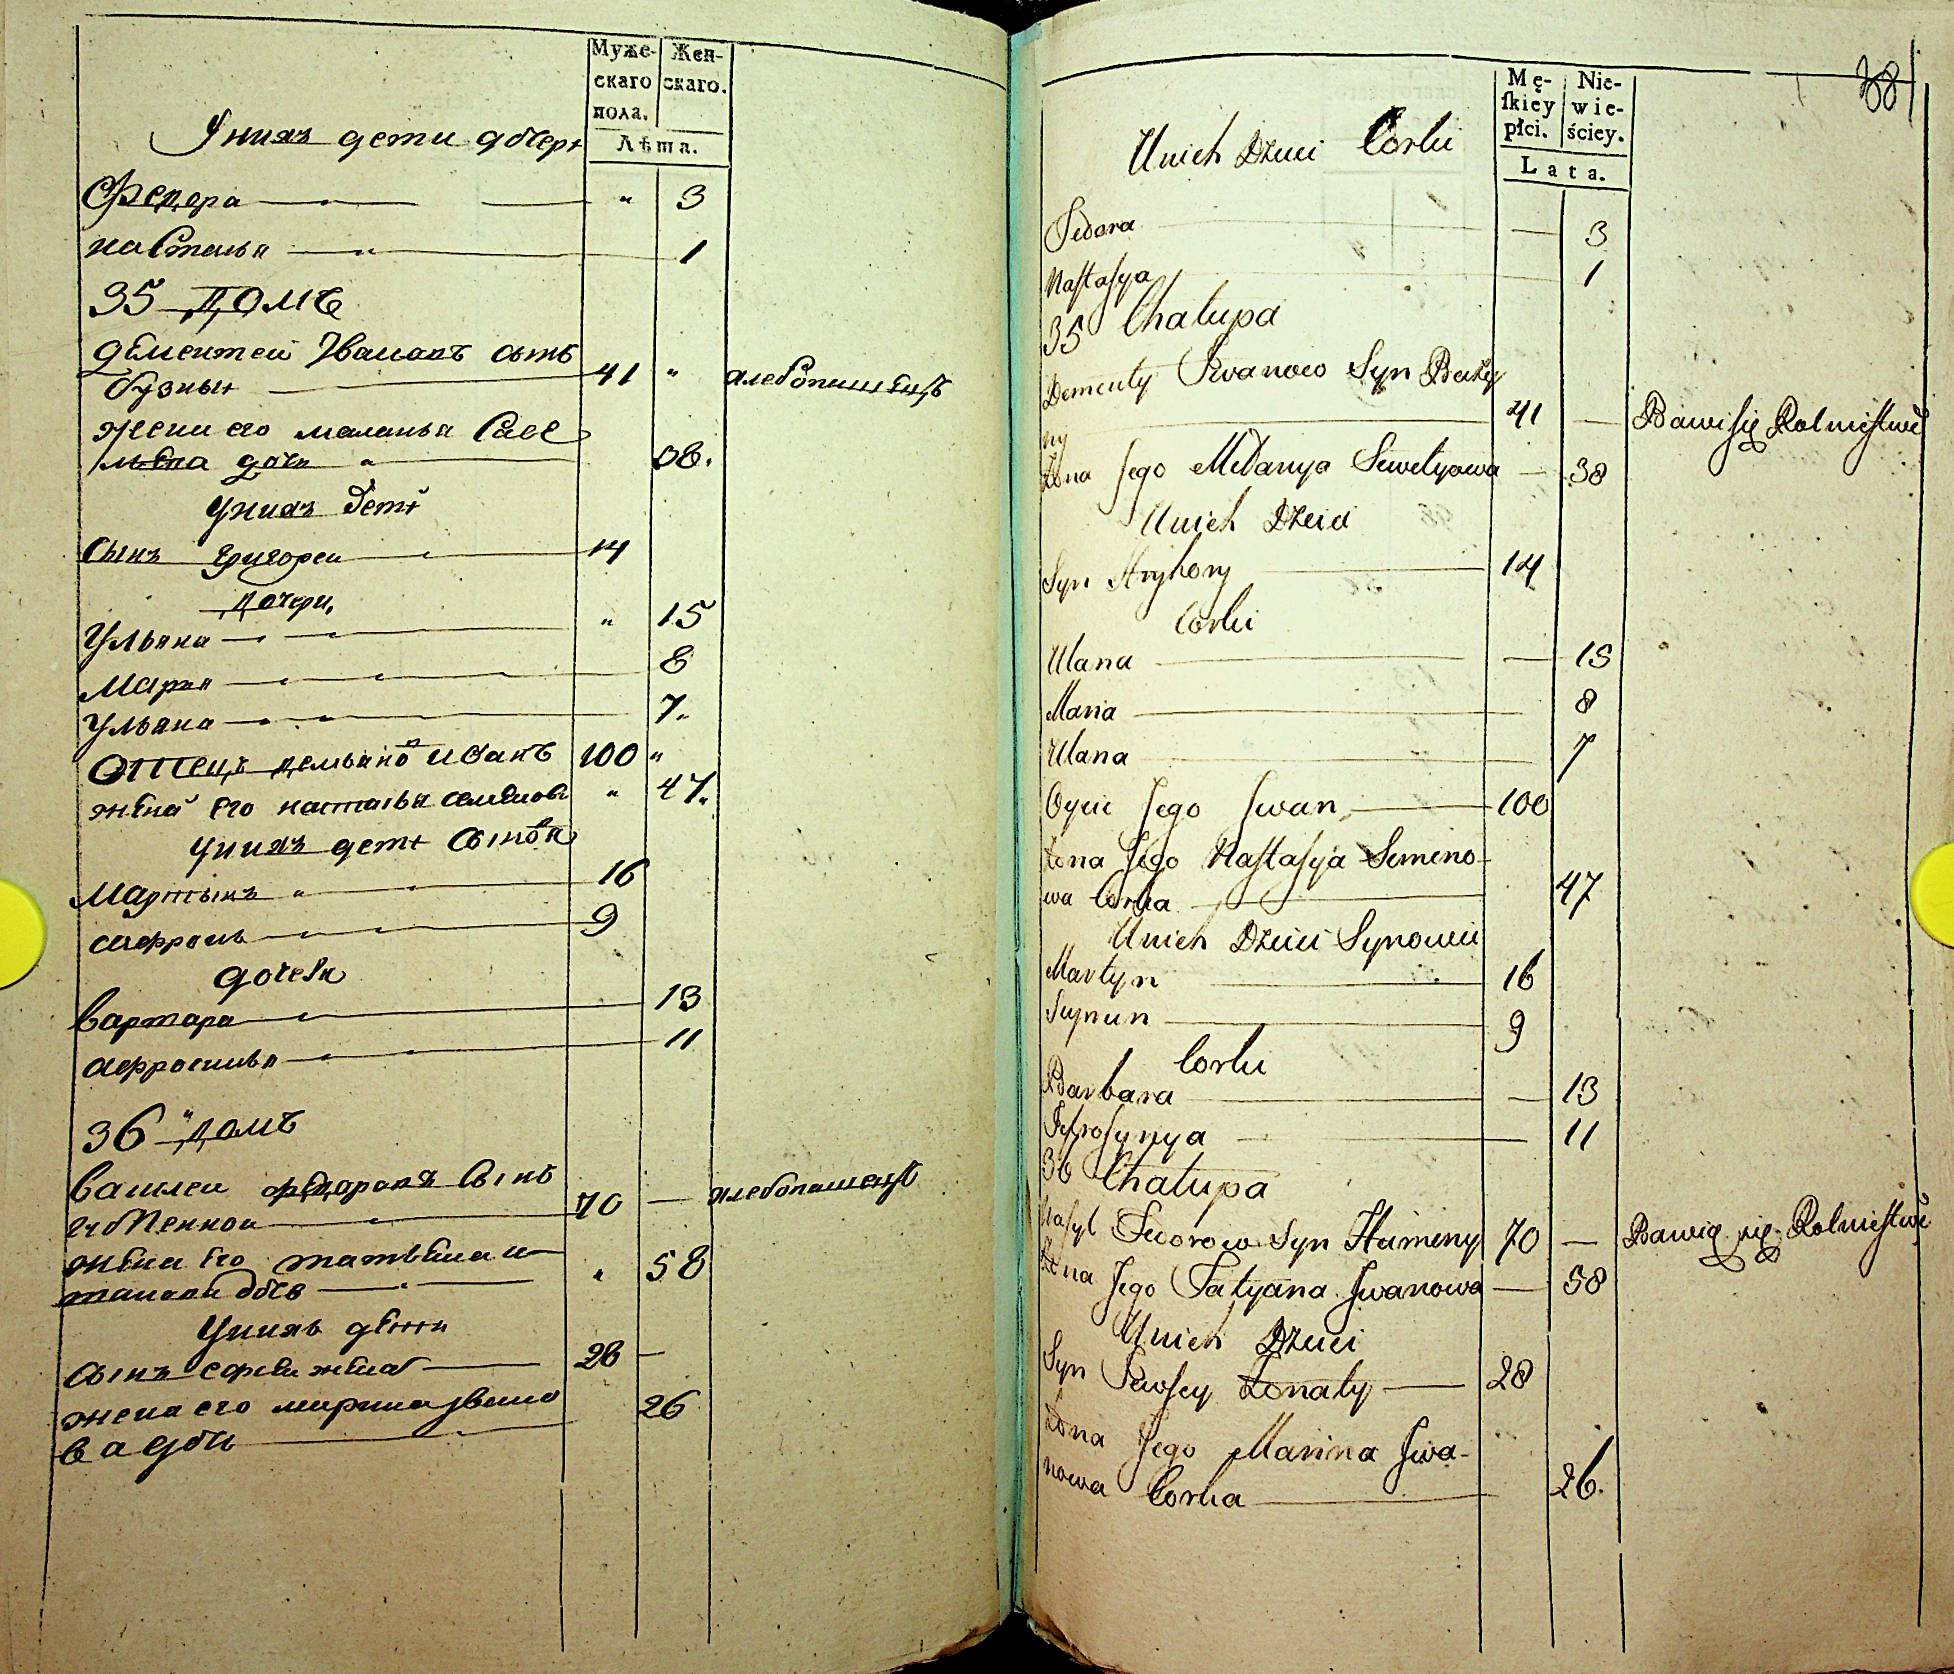 Муже-
скаго
пола.
Жен-
скаго.
Лѣта.
Униxъ дети дочери
Федора " 3
настасья 1
35 домъ
дементей Ивановъ сынъ
бузнын 41 " хлебопашецъ
жена его маланья Савѣ
льева дочь 38.
Унихъ дети
сынъ григореи 14
дочери,
Ульяна " 15
Мария 8
Ульяна 7.
Отецъ иванъ 100 "
жена его настасья семенова " 47.
унихъ дети сыновя
мартынъ 16
9
дочери
варвара 13
11
36 домъ
василеи федоровъ сынъ
70 — хлебопашецъ
жена его татьяна и
вановa дочь " 58
Унихъ дети
сынъ женат 28 —
жена его марина Ивано 26
ва дочь
38
Mę-
ſkiey
płci.
Nie-
wie-
ściey.
Lata.
Unich Dzieci Corki
Fedora — 3
Naſtaſya 1
35 Chałupa
Dementy Iwanow Syn
ny 41 — Bawi ſię Rolnictwē
Żona Jego Mełanya — 38
Unich Dzieci
Syn Hryhory 14
Corki
Ulana — 15
Maria 8
Ulana 7
Oyciec Jego Iwan 100
Żona Jego Naſtaſya Semeno-
wa Corka 47
Unich Dzieci Synowie
Martyn 16
9
Corki
Barbara — 13
11
36 Chałupa
Waſyl Fedorow Syn 70 — Bawią się Rolnictwē
Żona Jego Tatyana Iwanowa — 58
Unich Dzieci
Syn Żonaty 28
Żona Jego Marina Iwa-
nowa Corka 26.